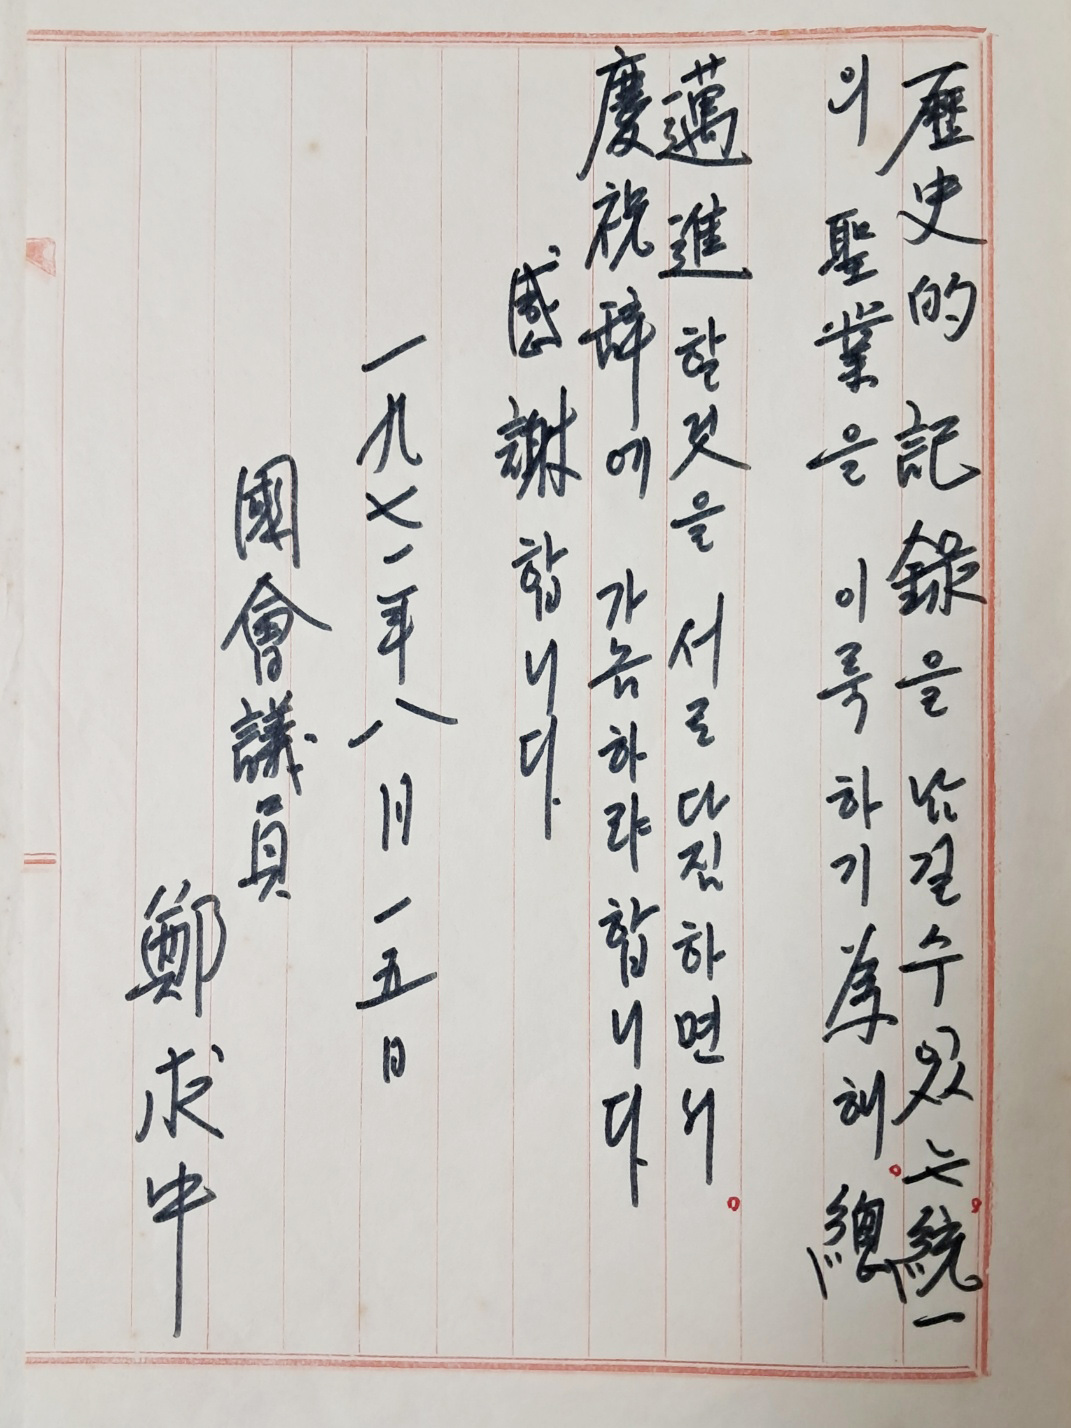 歷史的 記錄을 남길수있는 統一
의 聖業을 이룩하기 爲해 總
邁進 할것을 서로 다짐하면서
慶祝辞에 가늠하랴 합니다
感謝 합니다.
一九七一年 八月 一五日
國會議員
鄭求中